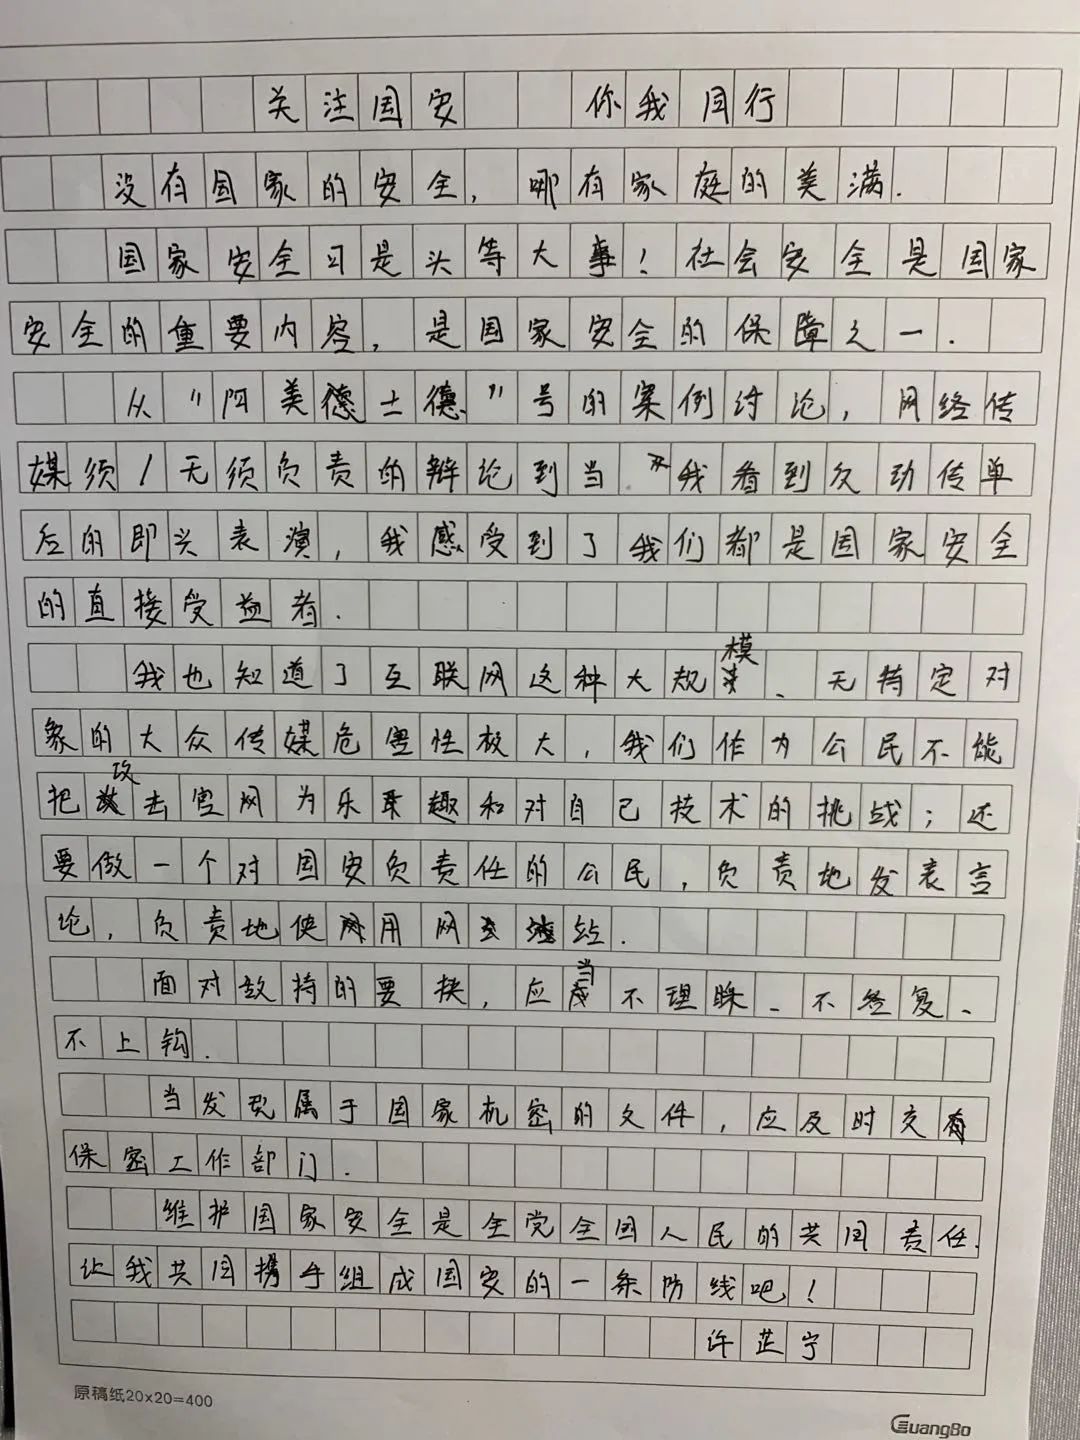 关注国安 你我同行
没有国家的安全，哪有家庭的美满.
国家安全习是头等大事！社会安全是国家
安全的重要内容，是国家安全的保障之一.
从"阿美德士德"号的案例讨论，网络传
媒须/无须负责的辩论到当我看到欠动传单
后的即兴表演，我感受到了我们都是国家安全
的直接受益者.
我也知道了互联网这种大规模、无特定对
象的大众传媒危害性极大，我们作为公民不能
把攻击官网为乐趣和对自己技术的挑战；还
要做一个对国安负责任的公民，负责地发表言
论，负责地使用网站.
面对敌特的要挟，应当不理睬、不答复、
不上钩.
当发现属于国家机密的文件，应及时交有
保密工作部门.
维护国家安全是全党全国人民的共同责任.
让我共同携手组成国安的一条防线吧！
许芷宁
原稿纸20×20=400
GuangBo